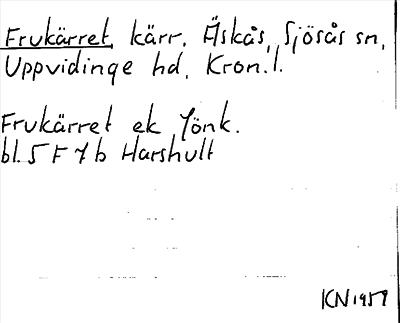 Frukärret, kärr, Äskås, Sjösås sn,
Uppvidinge hd, Kron.l.
Frukärret ek Jönk.
bl. 5 F 7 b Harshult
KN 1959